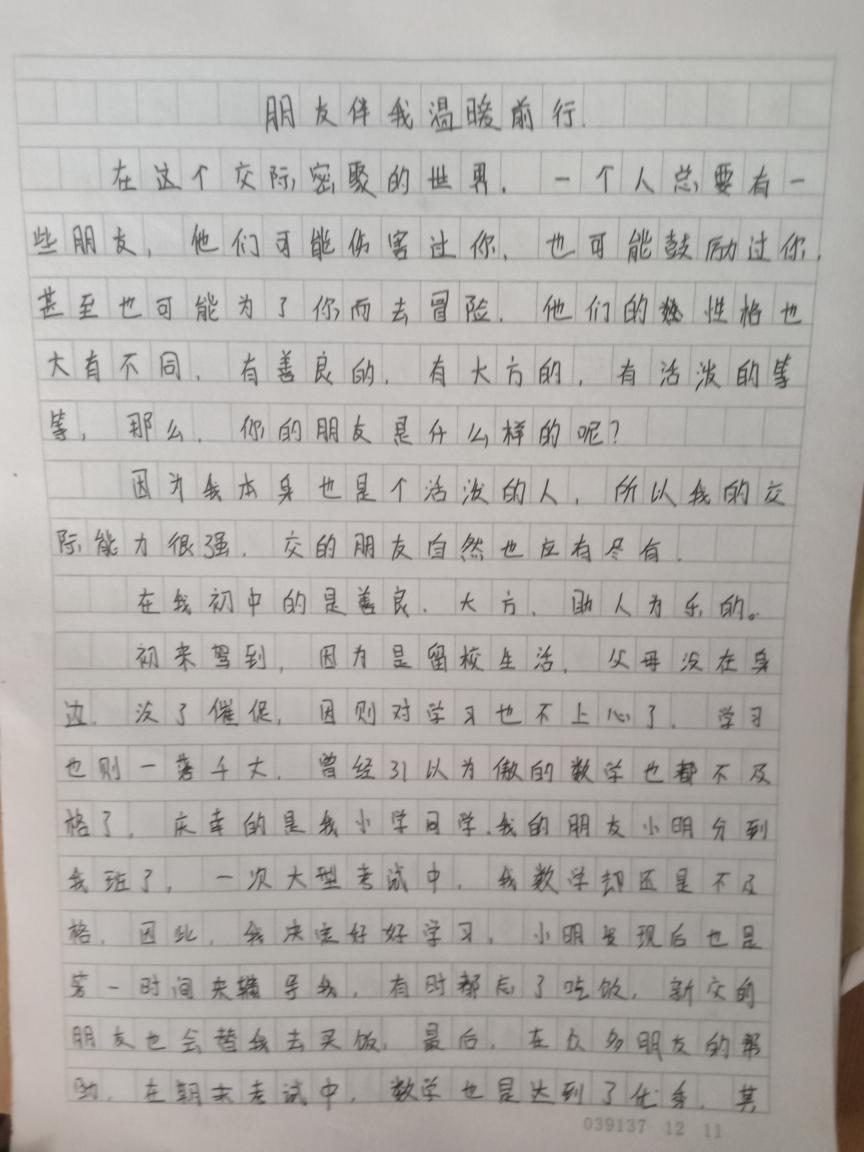 朋友伴我温暖前行.
在这个交际密聚的世界,一个人总要有一
些朋友,他们可能伤害过你,也可能鼓励过你,
甚至也可能为了你而去冒险.他们的性格也
大有不同,有善良的,有大方的,有活泼的等
等,那么,你的朋友是什么样的呢?
因为我本身也是个活泼的人,所以我的交
际能力很强.交的朋友自然也应有尽有.
在我初中的是善良、大方、助人为乐的。
初来驾到,因为是留校生活,父母没在身
边.没了催促,因则对学习也不上心了.学习
也则一落千丈.曾经引以为傲的数学也都不及
格了,庆幸的是我小学同学、我的朋友小明分到
我班了,一次大型考试中,我数学却还是不及
格.因此,我决定好好学习,小明发现后也是
第一时间来辅导我,有时都忘了吃饭,新交的
朋友也会替我去买饭,最后,在众多朋友的帮
助,在期末考试中,数学也是达到了优秀,其
039137 12 11